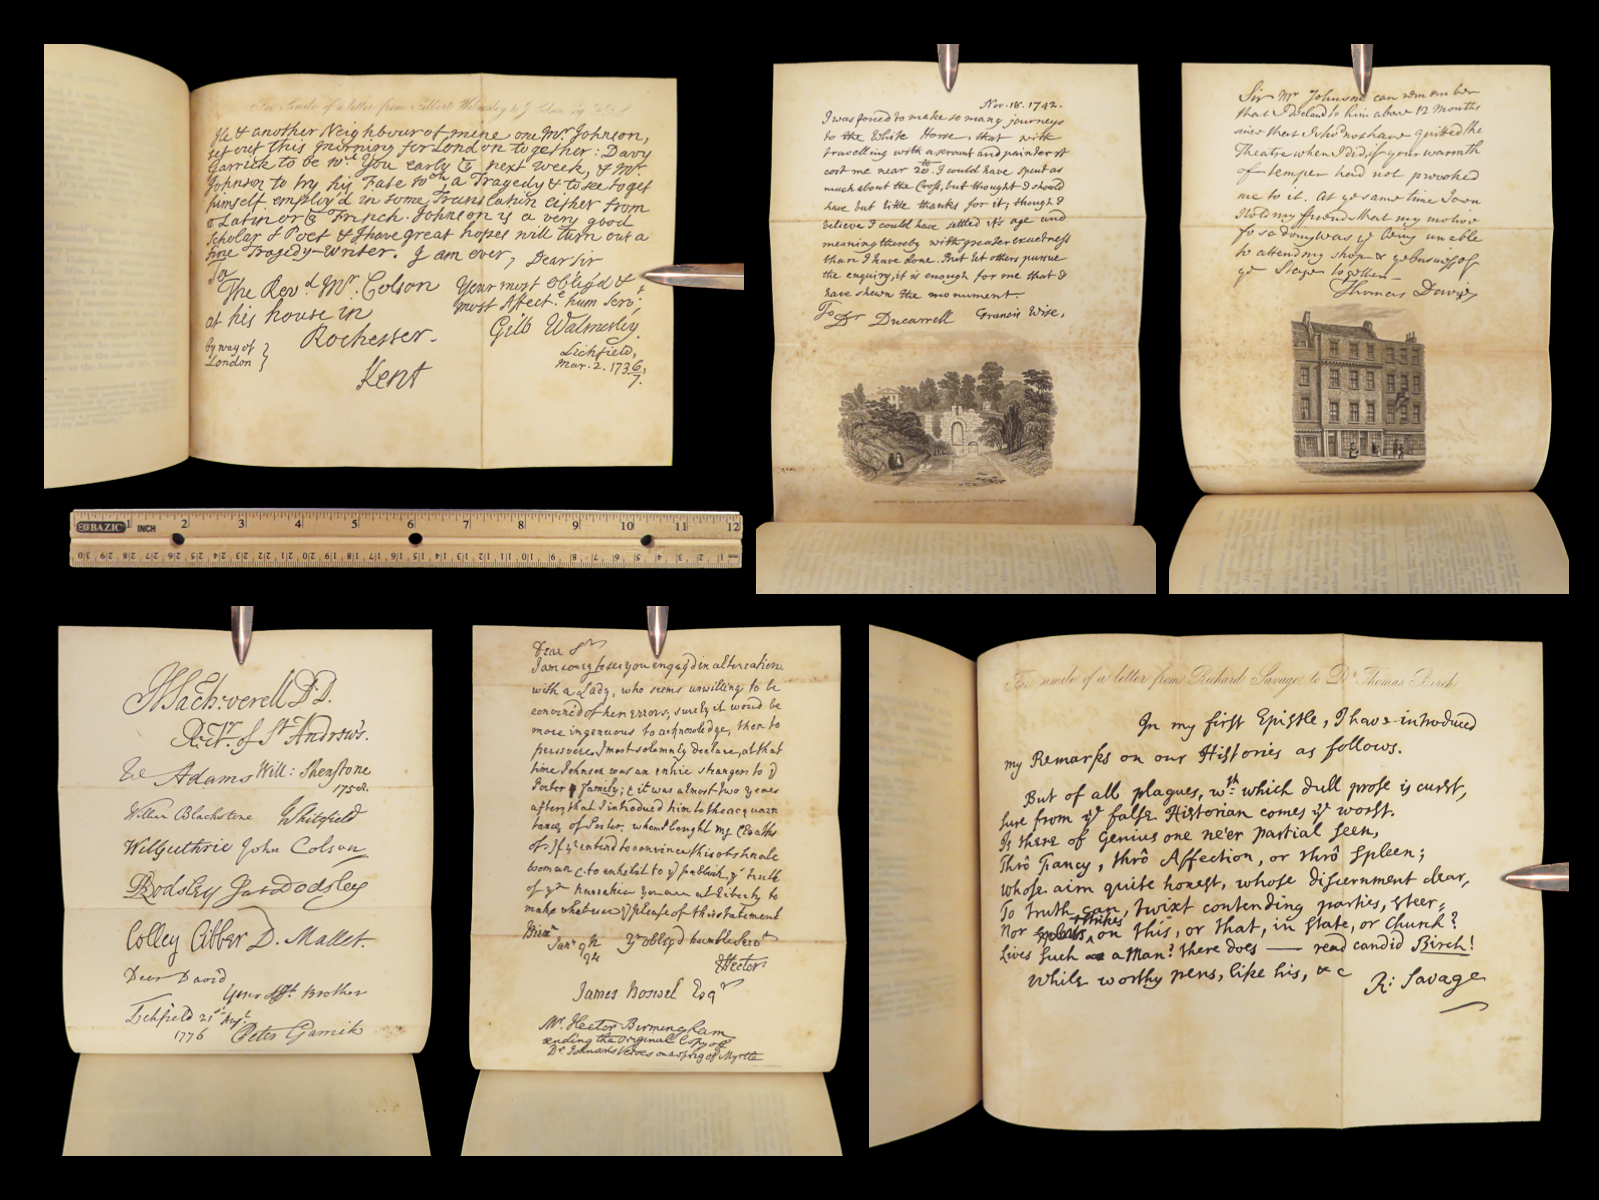 Fac Simile of a letter from Gilbert Walmesley to J. Colson Esq.
He & another Neighbour of mine one Mr. Johnson,
set out this morning for London together: Davy
Garrick to be wth. You early ye next week, & Mr.
Johnson to try his Fate wth a Tragedy & to see to get
himself employ'd in some Translation either from
ye Latin or ye French. Johnson is a very good
Scholar & Poet & I have great hopes will turn out a
fine Tragedy-Writer. I am ever, Dear Sir
To
The Revd Mr. Colson
at his house in
Rochester.
by way of
London
Kent
Your most oblig'd &
most Affect.e hum Serv:
Gilb Walmesley.
Lichfield,
Mar. 2. 1736/7.
BAZIC
INCH
1 2 3 4 5 6 7 8 9 10 11 12
Nov. 18. 1742.
I was forced to make so many journeys
to the White Horse, that with
travelling with a servant and painter it
cost me near 20. I could have spent as
much about the Cross, but thought I should
have but little thanks for it; though I
believe I could have settled it's age and
meaning thereby with greater exactness
than I have done. But let others pursue
the enquiry, it is enough for me that I
have shewn the monument.
To Dr Ducarrell Francis Wise,
Sir Mr Johnson can remember
that I declard to him above 12 Months
since that I should not have quitted the
Theatre when I did, if your warmth
of temper had not provoked
me to it. at ye same time I own
I told my friend that my motive
for so doing was ye being unable
to attend my shop & ye business of
ye Stage together
Thomas Davies
H Sach:verell D.D.
Rectr. of St Andrew's.
Wm Adams Will: Shenstone
1758.
William Blackstone Whitefield
Will Guthrie John Colson
R Dodsley Jas Dodsley
Colley Cibber D. Mallet
Dear David
Your afft. Brother
Lichfield 21st Augt.
1776 Peter Garrick
Dear Sr
I am sorry to see you engag'd in altercation
with a Lady, who seems unwilling to be
convinc'd of her errors; surely it woud be
more ingenuous to acknowledge, then to
persevere. I most solemnly declare, at that
time Johnson was an entire stranger to ye
Porter family; & it was almost two years
after, that I introduced him to the acquain
tance of Porter, whom I bought my Cloaths
of. If you intend to convince this obstinate
woman & to exhibit to ye publick, ye truth
of yr narrative you are at liberty to
make what use you please of this statement
Birmm
Jany 9th
94
Yr oblig'd humble Servt
E Hector
James Boswel Esqr
Mr. Hector Birmingham
sending the original Copy of
Dr. Johnson's Verses on a sprig of Myrtle
Fac simile of a letter from Richard Savage to Dr Thomas Birch
In my first Epistle, I have introduced
my Remarks on our Histories as follows.
But of all plagues, wth which dull prose is curst,
Sure from ye false Historian comes ye worst.
Is there of Genius one ne'er partial seen,
Thrô Fancy, thrô Affection, or thrô Spleen;
Whose aim quite honest, whose discernment clear,
To truth can, twixt contending parties, steer;
Nor strikes on this, or that, in State, or Church?
Lives such a Man? there does — read candid Birch!
While worthy pens, like his, &c
R: Savage